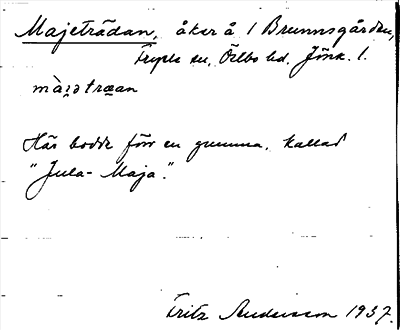 Majeträdan, åker å 1 Brunnsgården,
Fryele sn, Östbo hd, Jönk. l.
màjətræan
Här bodde förr en gumma, kallad
"Jula-Maja".
Fritz Andersson 1937.